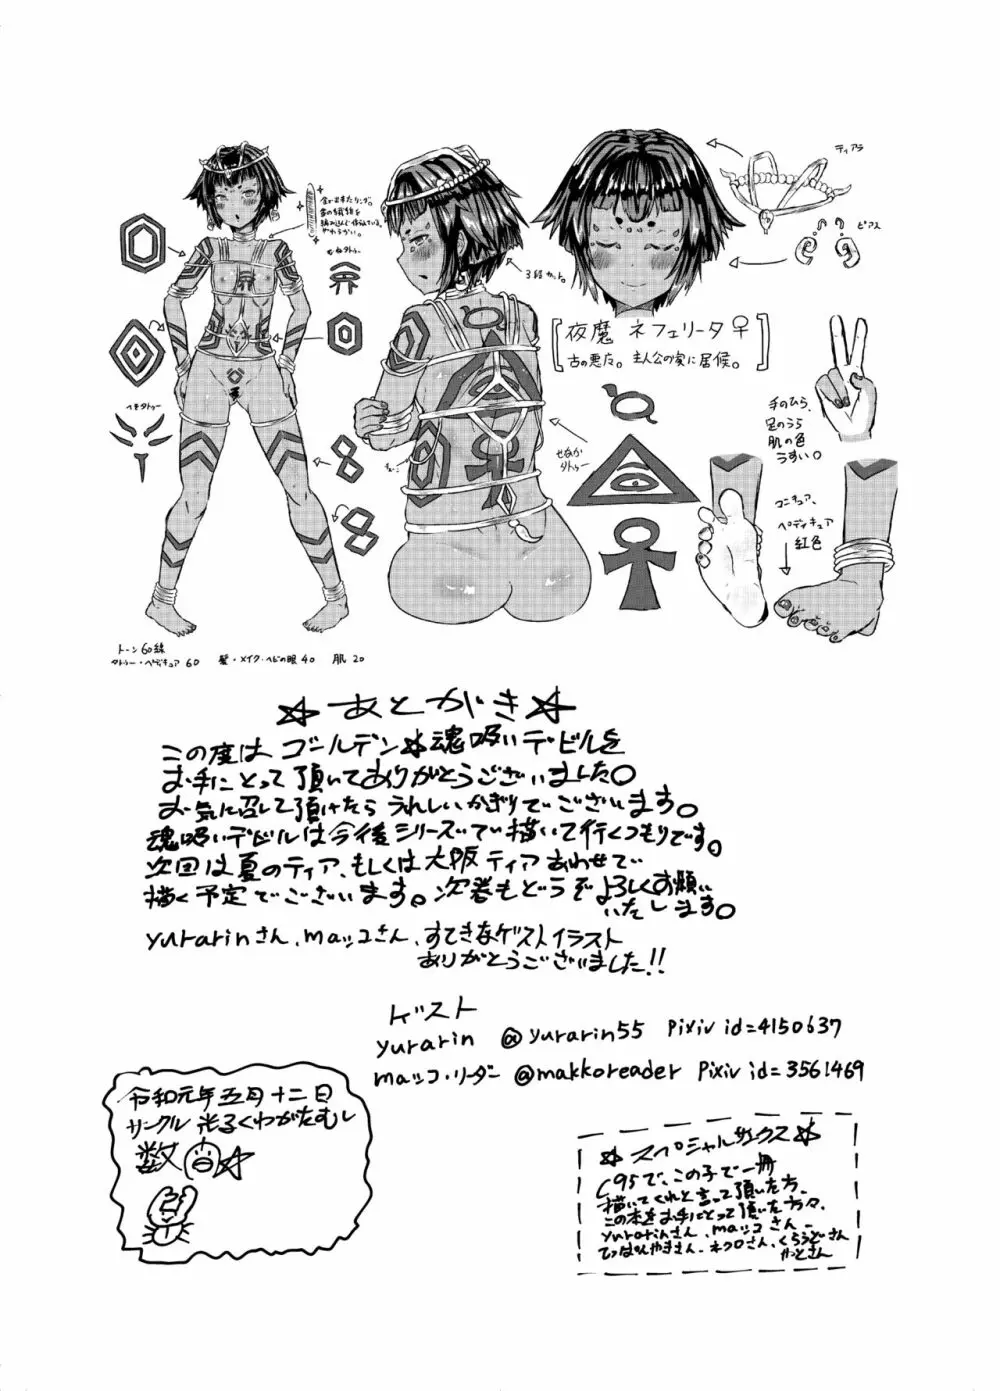 ティアラ
ピアス
むねタトゥー
3段カット。
[夜魔 ネフェリータ♀]
古の悪魔。主人公の家に居候。
へそタトゥー
せなか
タトゥー
手のひら、
足のうら
肌の色
うすい。
ペディキュア
紅色
トーン60線
タトゥー・ペディキュア 60 髪・メイク・ヘビの眼 40 肌 20
☆あとがき☆
この度はゴールデン☆魂吸いデビルを
お手にとって頂いてありがとうございました。
お気に召して頂けたらうれしいかぎりでございます。
魂吸いデビルは今後シリーズで描いて行くつもりです。
次回は夏のティア、もしくは大阪ティアあわせで
描く予定でございます。次巻もどうぞよろしくお願い
いたします。
yurarinさん、maッコさん、すてきなゲストイラスト
ありがとうございました!!
ゲスト
yurarin @yurarin55 Pixiv id=4150637
maッコ・リーダー @makkoreader Pixiv id=3561469
令和元年五月十二日
サークル 光るくわがたむし
数
☆スペシャルサンクス☆
C95で、この子で一冊
描いてくれと言って頂いた方、
この本をお手にとって頂いた方々、
yurarinさん、maッコさん、
てっぱんやきさん、ネクロさん、くらうどさん